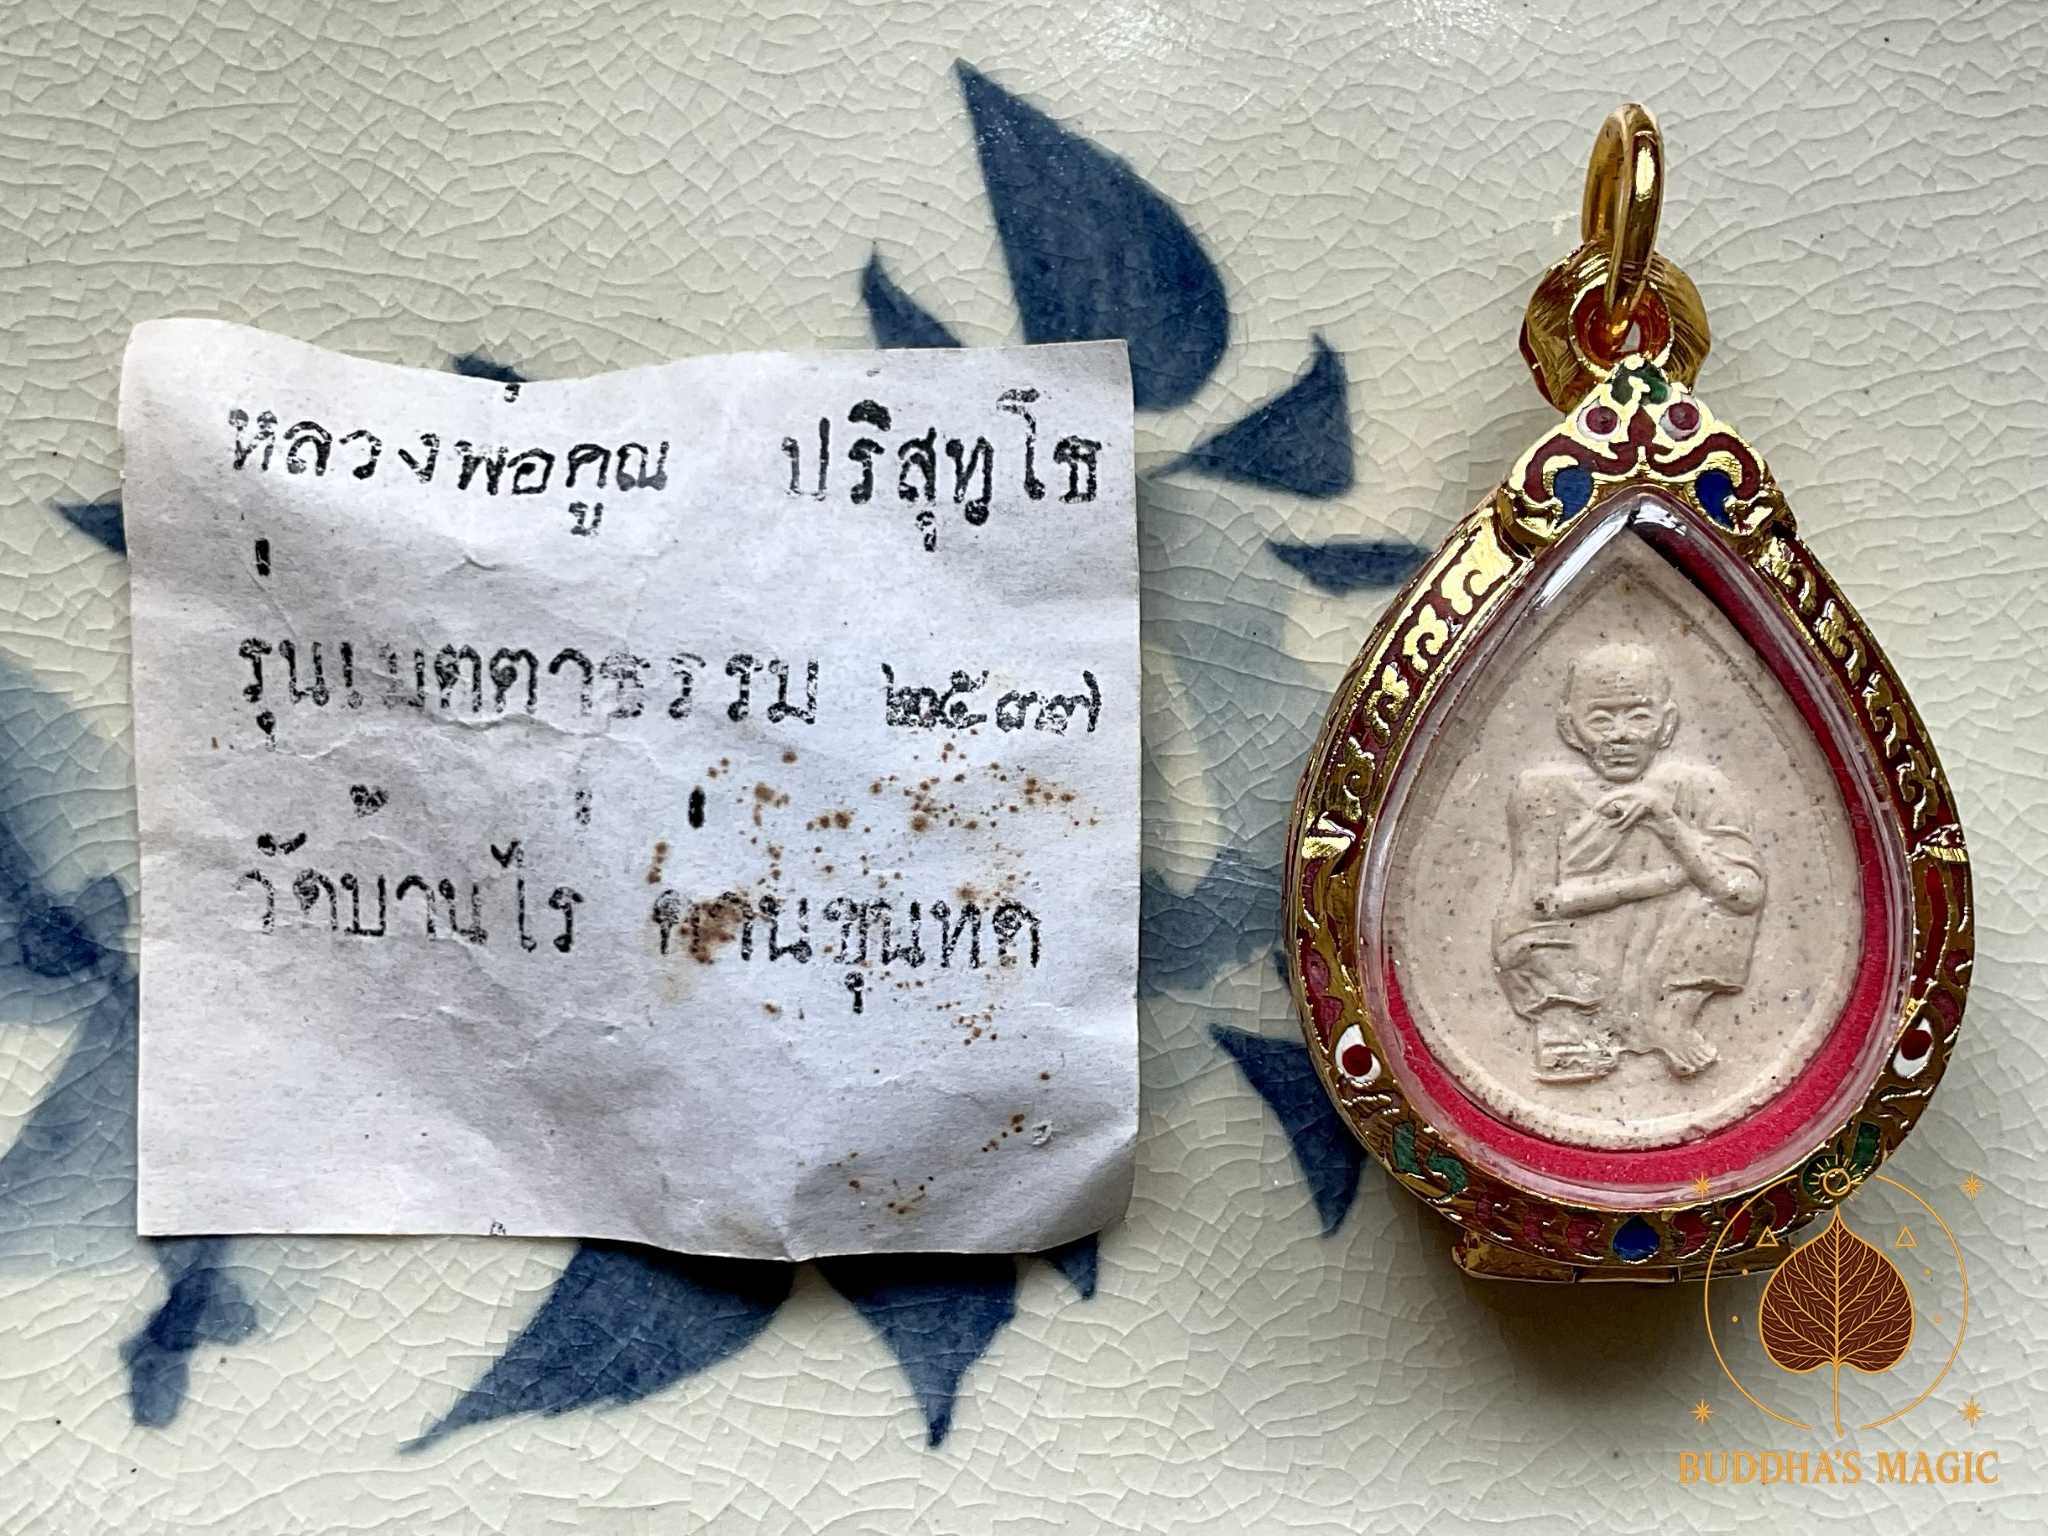 หลวงพ่อคูณ ปริสุทฺโธ
รุ่นเมตตาธรรม ๒๕๓๗
วัดบ้านไร่ ด่านขุนทด
BUDDHA'S MAGIC